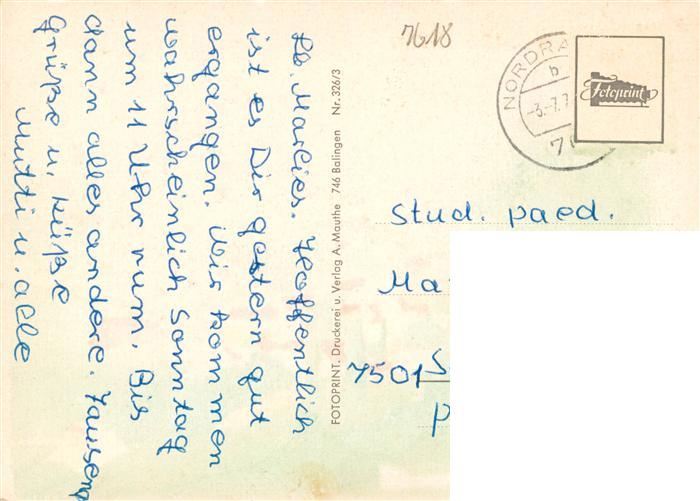 Lb. Marlies. Hoffentlich
ist es Dir gestern gut
ergangen. Wir kommen
wahrscheinlich Sonntag
um 11 Uhr rum. Bis
dann alles andere. Tausend
Grüße u. Küße
Mutti u. alle
FOTOPRINT. Druckerei u. Verlag A. Mauthe 746 Balingen Nr. 326/3
7618
NORDRA
b
-3.-7.7
76
Fotoprint
Stud. paed.
Ma
7501